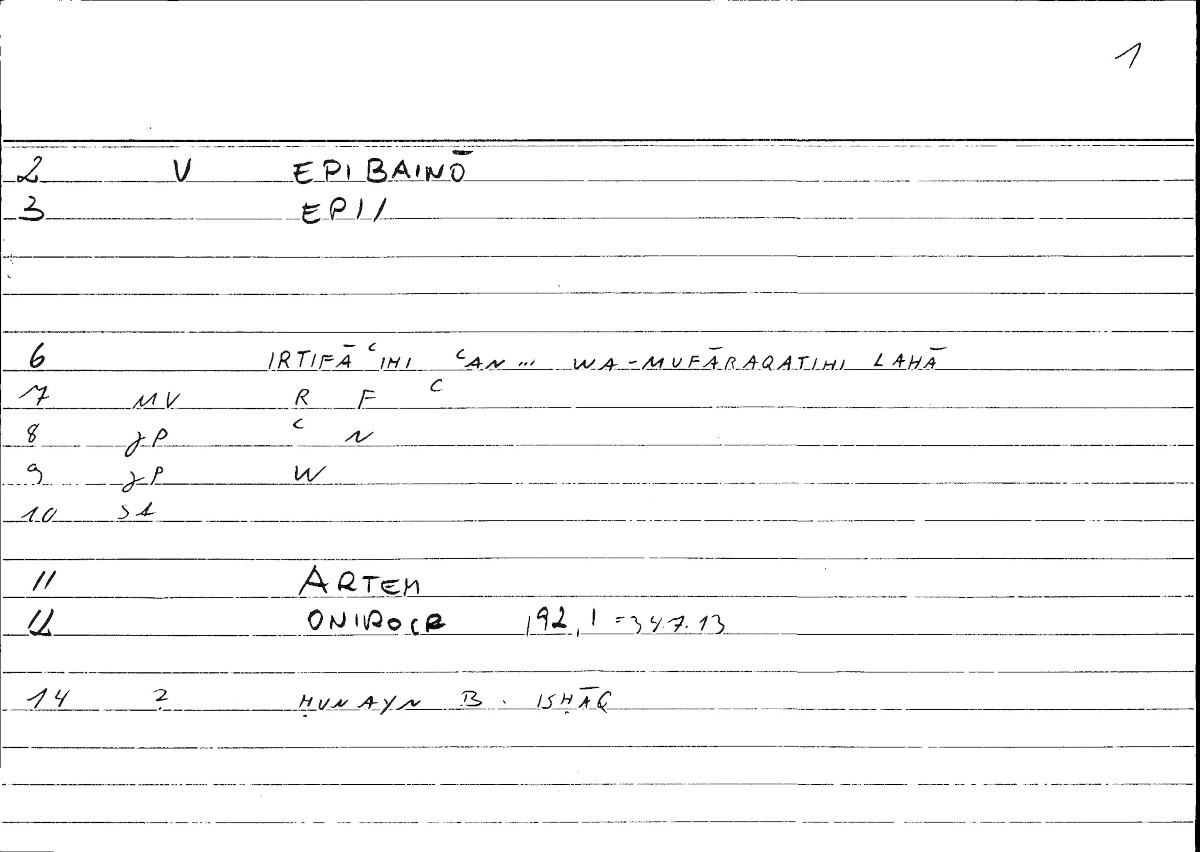 1
2 V EPIBAINŌ
3 EPI/
6 IRTIFĀʿIHI ʿAN... WA-MUFĀRAQATIHI LAHĀ
7 MV R F ʿ
8 JP ʿ N
9 JP W
10 S1
11 ARTEM
12 ONIROCR 192,1 =347.13
14 ? ḤUNAYN B. ISḤĀQ